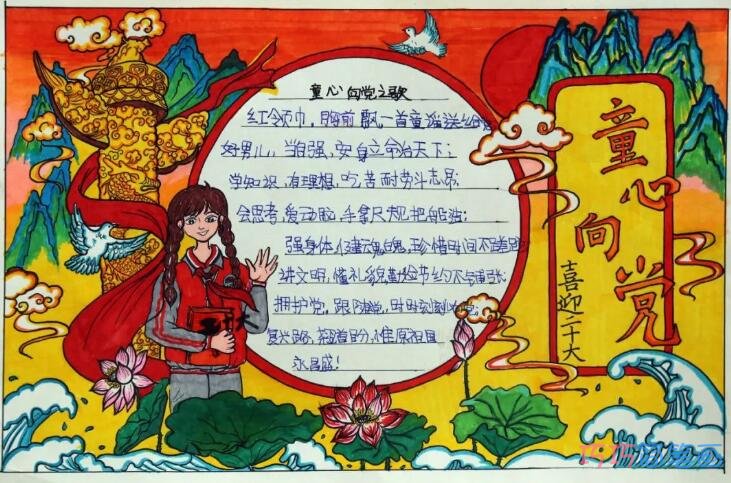 童心向党之歌
红领巾，胸前飘一首童谣送给
好男儿，当自强，安身立命治天下；
学知识，有理想，吃苦耐劳斗志昂；
会思考，爱动脑，手拿尺规把
强身体，健魂魄，珍惜时间不
讲文明，懂礼貌，勤俭节约不铺张；
拥护党，跟随党，时时刻刻
复兴路，朝着盼，惟愿祖国
永昌盛！
童心向党
喜迎二十大